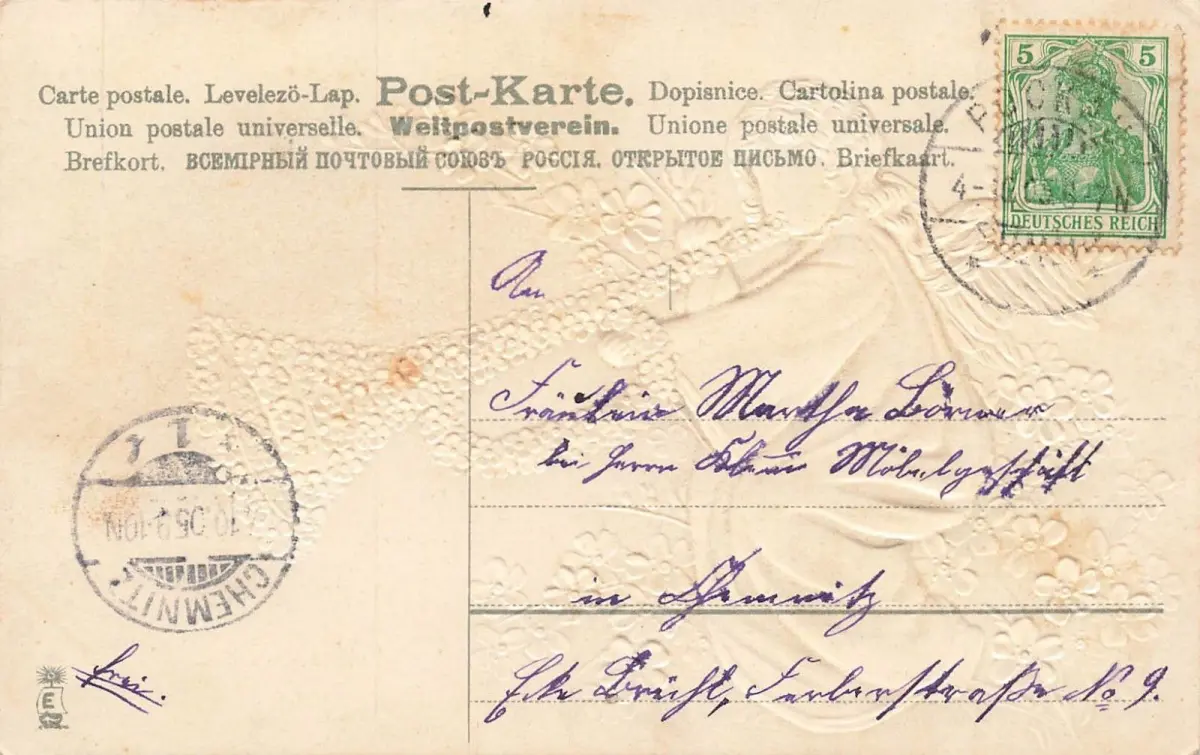 Carte postale. Levelezö-Lap. Post-Karte. Dopisnice. Cartolina postale.
Union postale universelle. Weltpostverein. Unione postale universale.
Brefkort. ВСЕМІРНЫЙ ПОЧТОВЫЙ СОЮЗЪ РОССІЯ. ОТКРЫТОЕ ПИСЬМО. Briefkaart.
5 5
DEUTSCHES REICH
An
Fräulein Martha Börner
bei Herrn Möbelgeschäft
in Chemnitz
Ecke Brühl, Ferberstraße No 9.
CHEMNITZ
1
10.05 9-10N
frei.
E